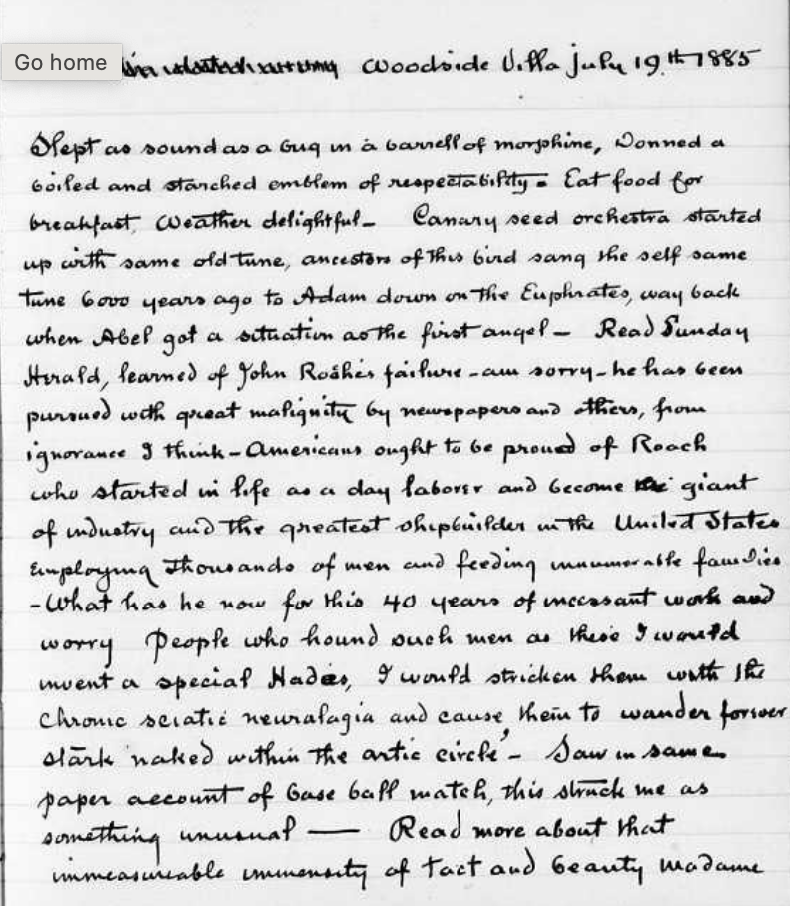 Go home
Woodside Villa July 19th 1885
Slept as sound as a bug in a barrell of morphine, Donned a
boiled and starched emblem of respectability. Eat food for
breakfast, Weather delightful- Canary seed orchestra started
up with same old tune, ancestors of this bird sang the self same
tune 6000 years ago to Adam down on the Euphrates, way back
when Abel got a situation as the first angel- Read Sunday
Herald, learned of John Roaches failure-am sorry-he has been
pursued with great malignity by newspapers and others, from
ignorance I think-Americans ought to be proud of Roach
who started in life as a day laborer and become giant
of industry and the greatest shipbuilder in the United States
Employing thousands of men and feeding innumerable families
-What has he now for this 40 years of incessant work and
worry People who hound such men as these I would
invent a special Hades, I would stricken them with the
Chronic sciatic neuralagia and cause them to wander forever
stark naked within the artic circle- Saw in same
paper account of base ball match, this struck me as
something unusual — Read more about that
immeasureable immensity of tact and beauty Madame